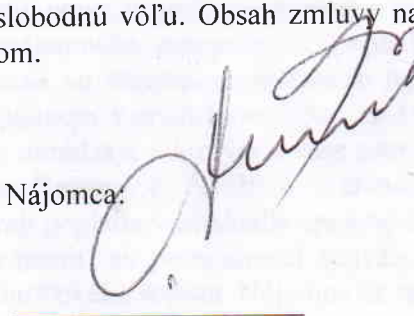 slobodnú vôľu. Obsah zmluvy na
om.
Nájomca: